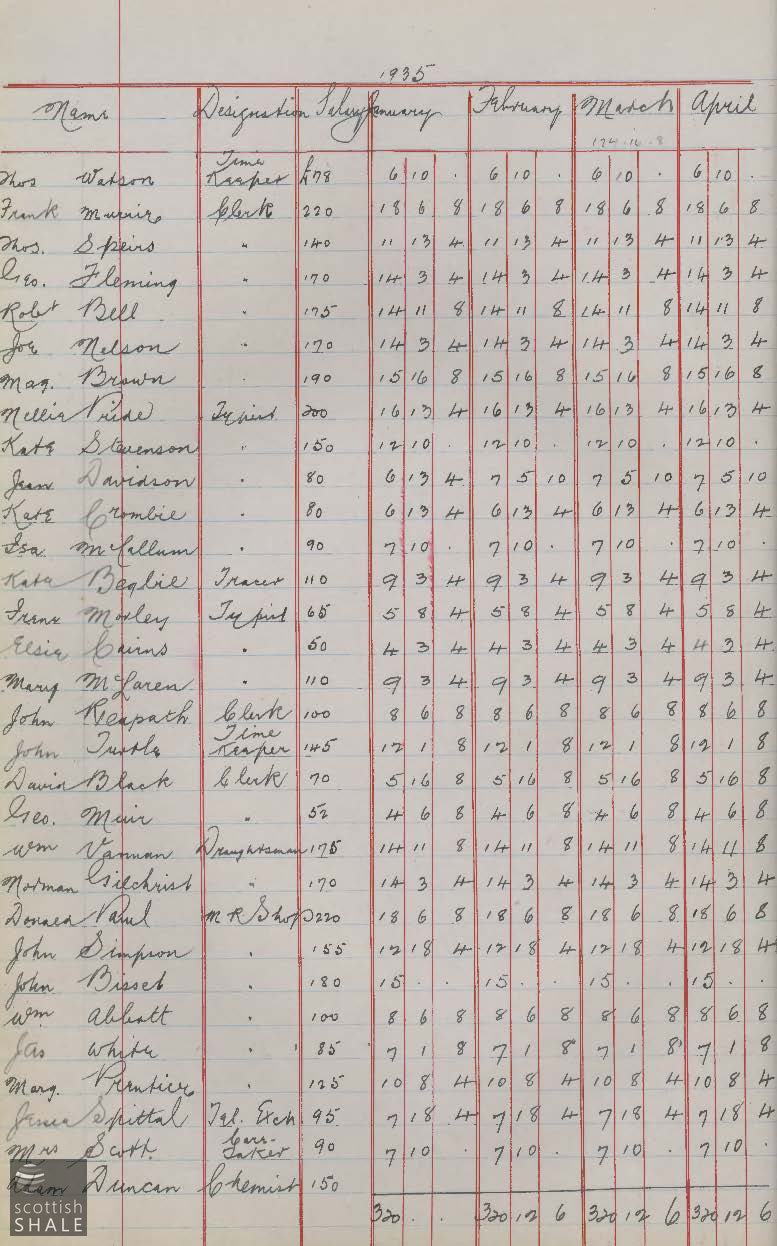 1935
Name Designation Salary January February March April
174.16.8
Thos Watson Time Keeper £78 6 10 . 6 10 . 6 10 . 6 10 .
Frank Clerk 220 18 6 8 18 6 8 18 6 8 18 6 8
Thos. Speirs " 140 11 13 4 11 13 4 11 13 4 11 13 4
Geo. Fleming " 170 14 3 4 14 3 4 14 3 4 14 3 4
Robt Bell " 175 14 11 8 14 11 8 14 11 8 14 11 8
Joe Nelson " 170 14 3 4 14 3 4 14 3 4 14 3 4
Mag. Brown " 190 15 16 8 15 16 8 15 16 8 15 16 8
Nellie Pride Typist 200 16 13 4 16 13 4 16 13 4 16 13 4
Kate Stevenson " 150 12 10 . 12 10 . 12 10 . 12 10 .
Jean Davidson " 80 6 13 4 7 5 10 7 5 10 7 5 10
Kate Crombie " 80 6 13 4 6 13 4 6 13 4 6 13 4
Isa McCallum " 90 7 10 . 7 10 . 7 10 . 7 10 .
Kate Begbie Tracer 110 9 3 4 9 3 4 9 3 4 9 3 4
Irene Morley Typist 65 5 8 4 5 8 4 5 8 4 5 8 4
Elsie Cairns " 50 4 3 4 4 3 4 4 3 4 4 3 4
Mary McLaren " 110 9 3 4 9 3 4 9 3 4 9 3 4
John Redpath Clerk 100 8 6 8 8 6 8 8 6 8 8 6 8
John Turtle Time Keeper 145 12 1 8 12 1 8 12 1 8 12 1 8
David Black Clerk 70 5 16 8 5 16 8 5 16 8 5 16 8
Geo. Muir " 52 4 6 8 4 6 8 4 6 8 4 6 8
Wm Vannan Draughtsman 175 14 11 8 14 11 8 14 11 8 14 11 8
Norman Gilchrist " 170 14 3 4 14 3 4 14 3 4 14 3 4
Donald Paul M R Shop 220 18 6 8 18 6 8 18 6 8 18 6 8
John Simpson " 155 12 18 4 12 18 4 12 18 4 12 18 4
John Bisset " 180 15 . . 15 . . 15 . . 15 . .
Wm Abbott " 100 8 6 8 8 6 8 8 6 8 8 6 8
Jas White " 85 7 1 8 7 1 8 7 1 8 7 1 8
Marg. Prentice " 125 10 8 4 10 8 4 10 8 4 10 8 4
Jessie Spittal Tel. Exch 95 7 18 4 7 18 4 7 18 4 7 18 4
Mrs Scott. Care-taker 90 7 10 7 10 . 7 10 . 7 10 .
Adam Duncan Chemist 150
320 . . 320 12 6 320 12 6 320 12 6
scottish
SHALE